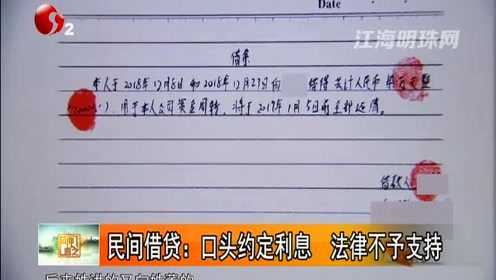 Date
江海明珠网
2
借条
本人于2018年12月6日和2018年12月27日向
借得共计人民币
用于本人公司资金周转,将于2019年1月5日前全部还清。
借款人
民间借贷：口头约定利息 法律不予支持